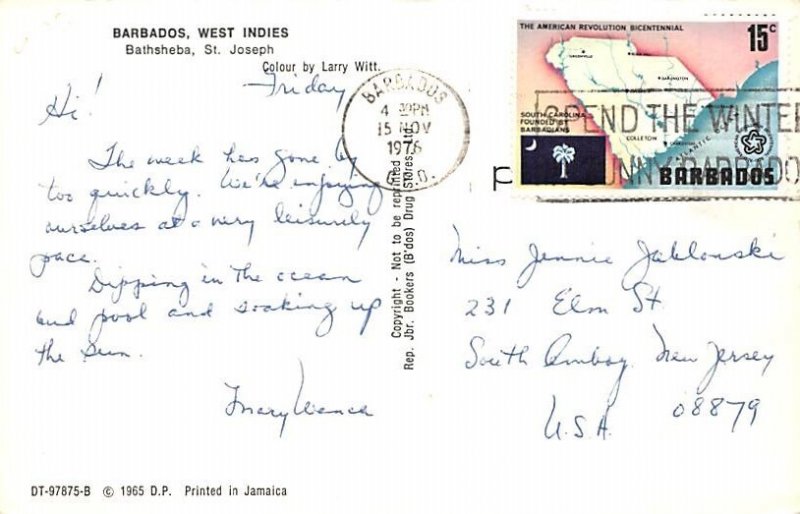 BARBADOS, WEST INDIES
Bathsheba, St. Joseph
Colour by Larry Witt.
Friday
Hi!
The week has gone by
too quickly. We're enjoying
ourselves at a very leisurely
pace.
Dipping in the ocean
and pool and soaking up
the sun.
Copyright - Not to be reprinted
Rep. Jbr. Bookers (B'dos) Drug Stores
BARBADOS
4 PM
15 NOV
1976
G.P.O.
SPEND THE WINTER
SUNNY BARBADO
THE AMERICAN REVOLUTION BICENTENNIAL
15c
SOUTH CAROLINA
FOUNDED BY
BARBADIANS
COLLETON
BARBADOS
Miss Jennie Jablonski
231 Elm St.
South Amboy, New Jersey
U.S.A. 08879
DT-97875-B © 1965 D.P. Printed in Jamaica